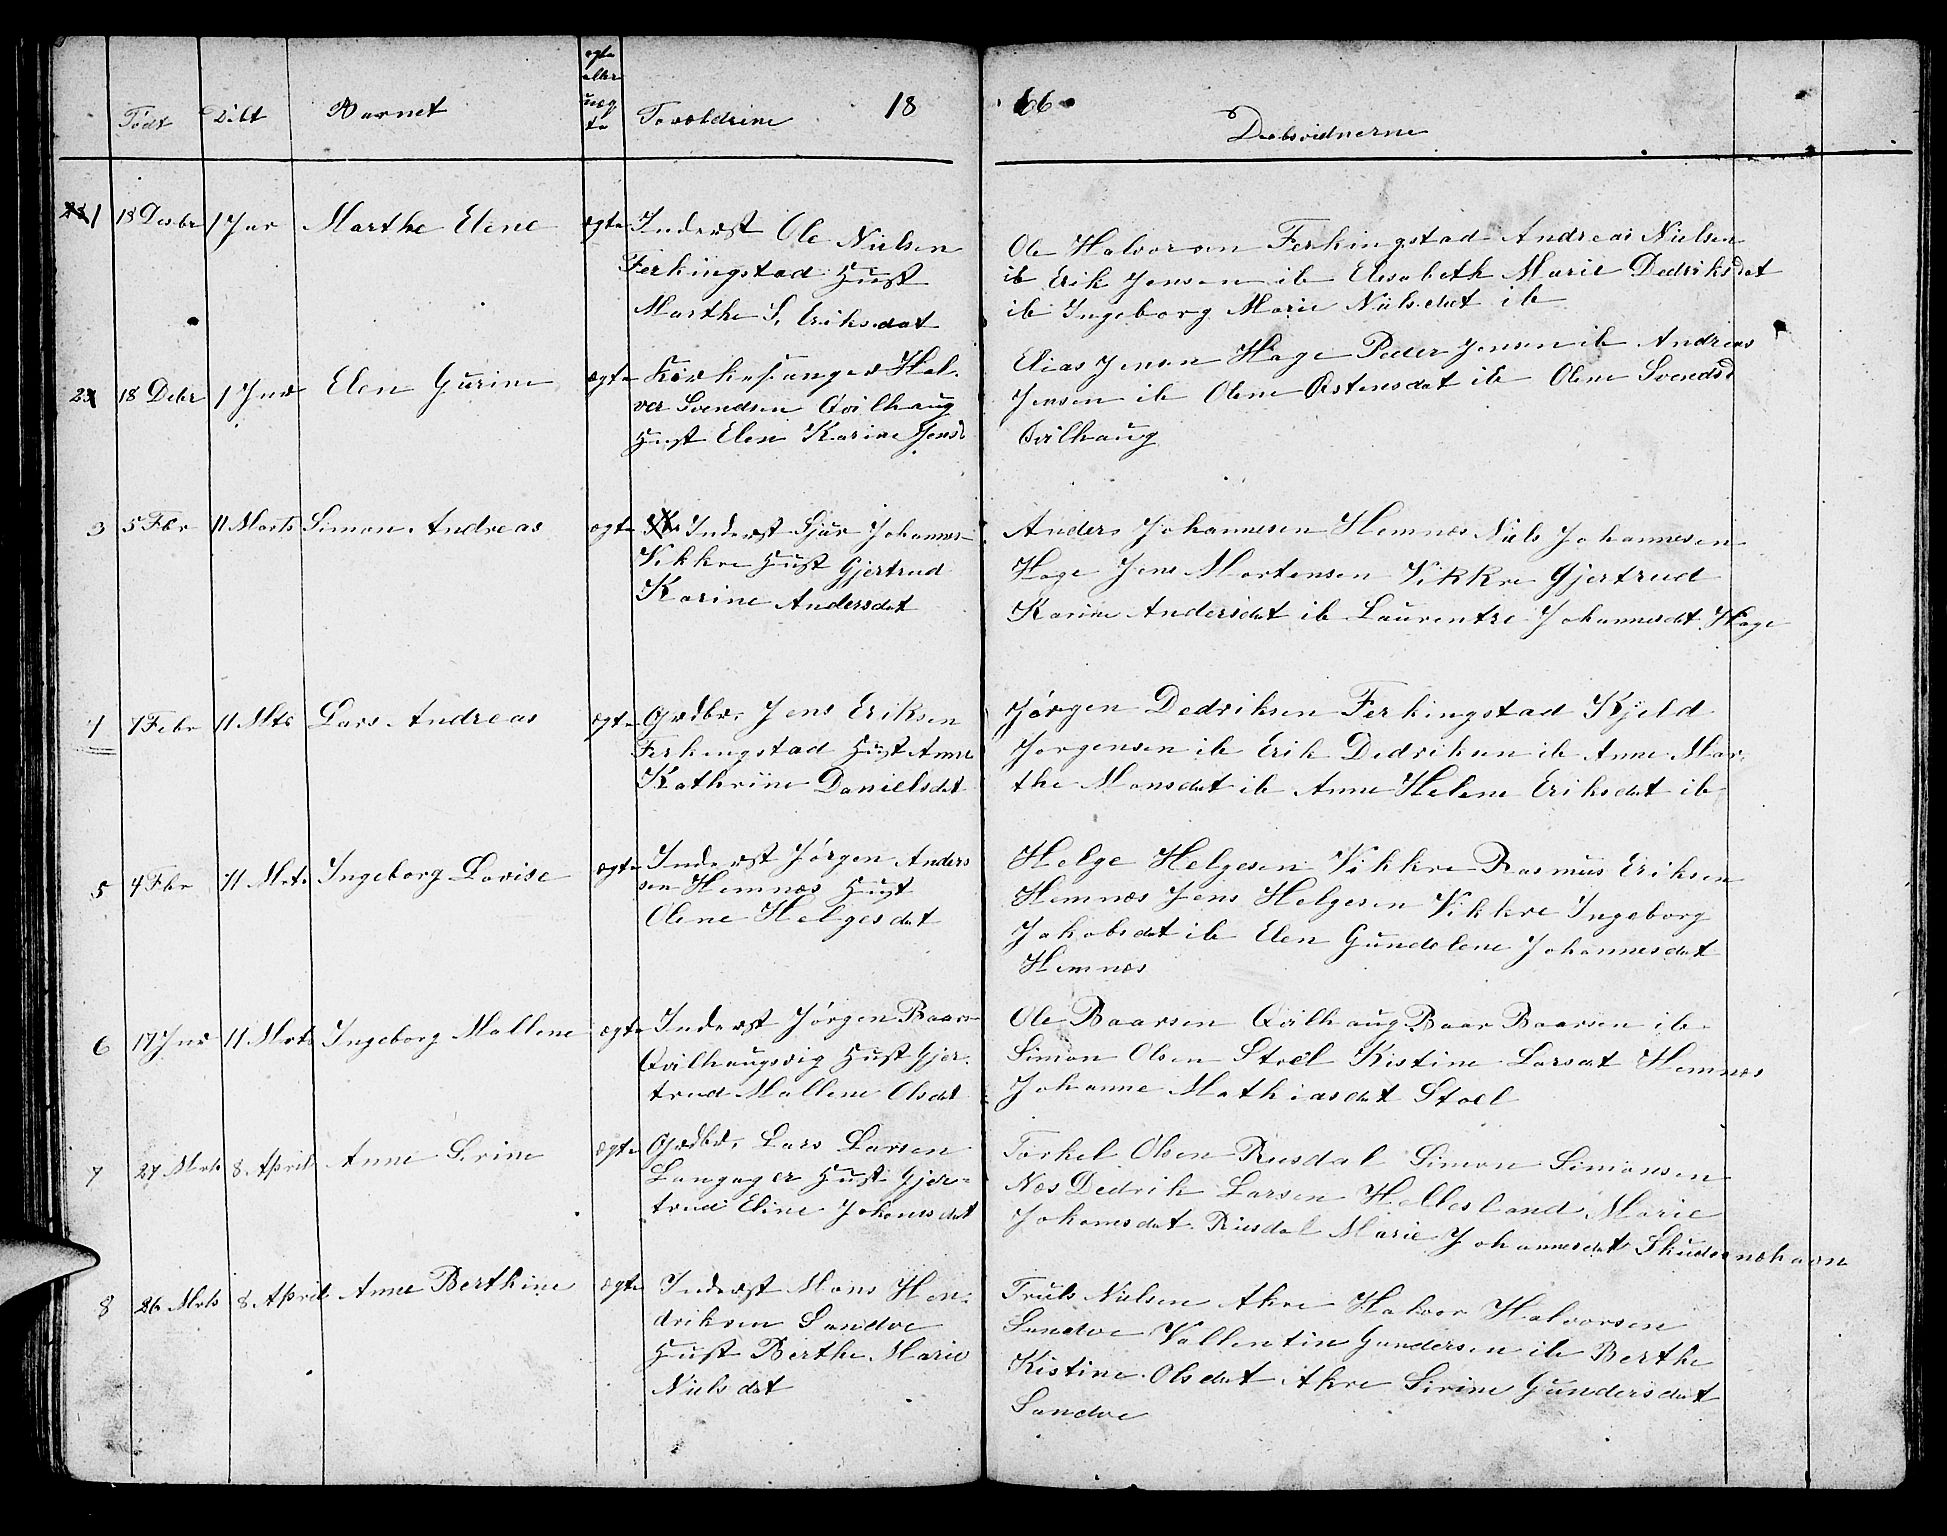 ægte
eller
uæg
te
Født Døbt Barnet Forældrene 18 66
Døbsvidnerne
1 18 Desbr 1 Jnr Marthe Elene ægte Inderst Ole Nielsen
Ferkingstad Hust
Marthe S. Eriksdat
Ole Halvorsen Ferkingstad Andreas Nielsen
ib Erik Jensen ib Elisabeth Marie Dedriksdat
ib Ingeborg Marie Nielsdat ib
2 18 Debr 1 Jnr Elen Gurine ægte Kirkesanger Hal-
vor Svendsen Qvilhaug
Hust Elen Karine Jensd
Elias Jensen Hage Peder Jensen ib Andreas
Jensen ib Olene Østensdat ib Olene Svendsd
Qvilhaug
3 5 Fbr 11 Marts Simon Andreas ægte Inderst Sjur Johannes
Vikkre Hust Gjertrud
Karine Andersdat
Anders Johannesen Hemnes Niels Johannesen
Hage Jens Mortensen Vikkre Gjertrud
Karine Andersdat ib Laurentse Johannesdat Hage
4 7 Febr 11 Mts Lars Andreas ægte Grdbr. Jens Eriksen
Ferkingstad Hust Anne
Kathrine Danielsdat
Jørgen Dedriksen Ferkingstad Kjeld
Jørgensen ib Erik Dedriksen ib Anne Mar-
the Monsdat ib Anne Helene Eriksdat ib
5 4 Fbr 11 Mrts Ingeborg Lovise ægte Inderst Jørgen Anders
sen Hemnes Hust
Olene Helgesdat
Helge Helgesen Vikkre Rasmus Eriksen
Hemnes Jens Helgesen Vikkre Ingeborg
Jakobsdat ib Elen Gundelene Johannesdat
Hemnes
6 17 Jnr 11 Mrts Ingeborg Mallene ægte Inderst Jørgen Baars
Qvilhaugsvig Hust Gjer-
trud Mallene Olsdat
Ole Baarsen Qvilhaug Baar Baarsen ib
Simon Olsen Stoel Kistine Larsdat Hemnes
Johanne Mathiasdat Stoel
7 27 Mrts 8 April Anne Serine ægte Grdbr. Lars Larsen
Langager Hust Gjer-
trud Eline Johansdat
Torkel Olsen Risdal Simon Simonsen
Nes Dedrik Larsen Hellesland Marie
Johansdat Risdal Marie Johannesdat Skudesnæshavn
8 26 Mrts 8 April Anne Berthine ægte Inderst Mons Hen-
driksen Sandve
Hust Berthe Marie
Nielsdat
Truls Nielsen Akre Halvor Halvorsen
Sandve Vallentin Gundersen ib Berthe
Kistine Olsdat Akre Sirine Gundersdat
Sandve